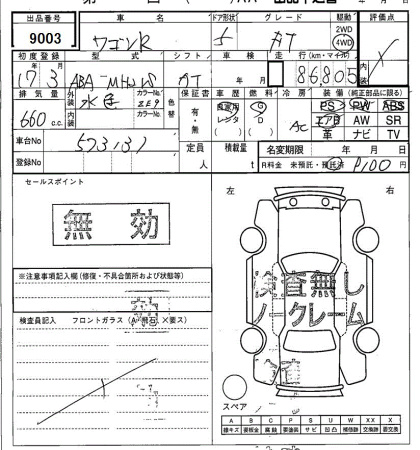 出品番号 車名 ドア形状 グレード 駆動 評価点
9003 ワゴンR 5 AT 2WD 4WD X
初度登録 型式 シフト 車検 走行(km・マイル)
17年 3月 ABA-MH21S AT 年 月 86,805
排気量 外装 水色 カラーNo. ZE9 色替 保証書 車歴 燃料 冷房 装備 (純正部品に限る)
内装 カラーNo. 有・無 自家用 レンタ G D AC PS PW ABS
660 c.c. エア図 AW SR
革 ナビ TV
車台No 573131 定員 積載量 名変期限 年 月 日
登録No 人 t R料金 未預託・預託済 ¥9100
セールスポイント 左 右
無効
検査無し
ノークレーム
※注意事項記入欄(修復・不具合箇所および状態等)
検査員記入 フロントガラス (A・飛石 X要ス)
スペア
A B C P S U W X XX
線キズ 要板金 腐蝕 要塗装 サビ 凹凸 補修跡 交換跡 要交換